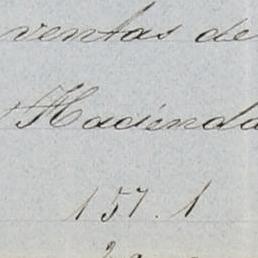 ventas de
Hacienda
157.1